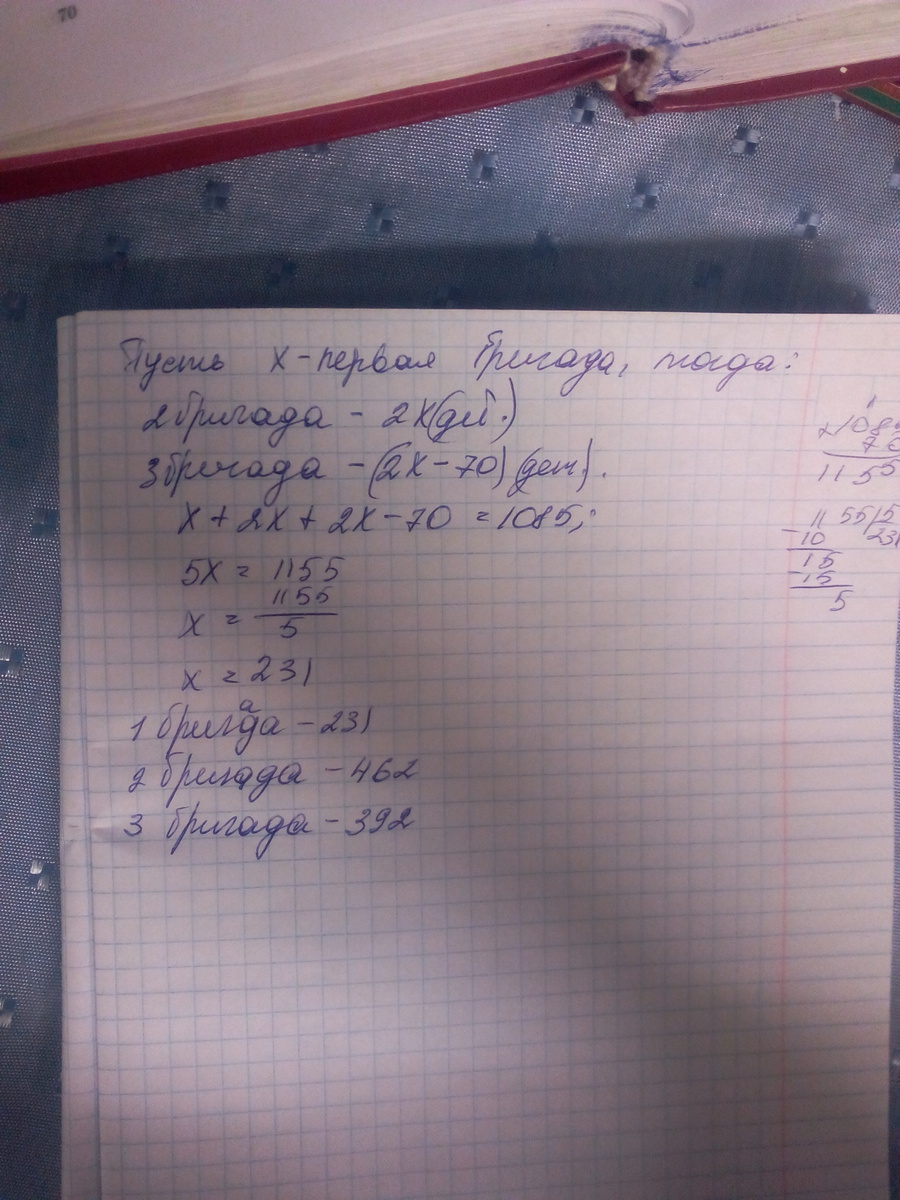 70
Пусть x-первая бригада, тогда:
2бригада - 2x(дет.)
3бригада - (2x-70)(дет).
x + 2x + 2x - 70 = 1085;
5x = 1155
x = 1155/5
x = 231
1 бригада - 231
2 бригада - 462
3 бригада - 392
1
108
70
1155
1155|5
-10 231
15
-15
5